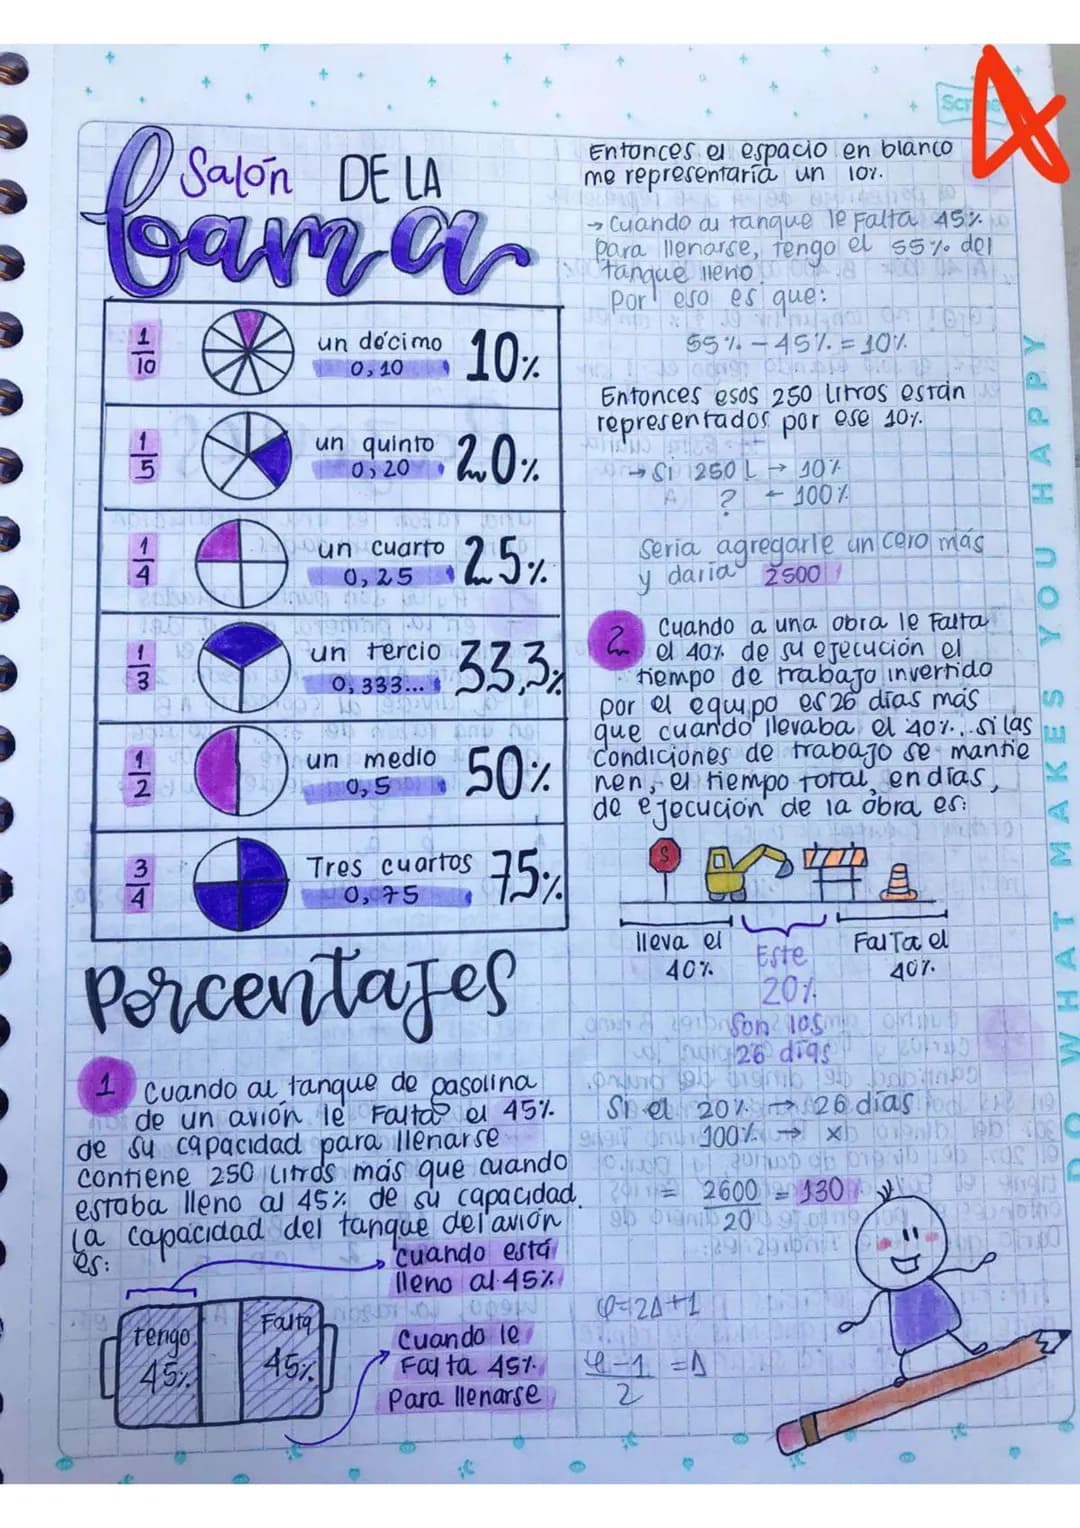 Salón DE LA
fama
1/10 un décimo 10%
0,10
1/5 un quinto 20%
0,20
1/4 un cuarto 25%
0,25
1/3 un tercio 33,3%
0,333...
1/2 un medio 50%
0,5
3/4 Tres cuartos 75%
0,75
Porcentajes
1 Cuando al tanque de gasolina
de un avión le Falta el 45%
de su capacidad para llenarse
contiene 250 litros más que cuando
estaba lleno al 45% de su capacidad.
La capacidad del tanque del avión
es:
Cuando está
lleno al 45%
tengo
45%
Falta
45%
Cuando le
Falta 45%
Para llenarse
Entonces el espacio en blanco
me representaría un 10%.
→ Cuando al tanque le Falta 45%
para llenarse, tengo el 55% del
tanque lleno.
por eso es que:
55% - 45% = 10%
Entonces esos 250 litros están
representados por ese 10%.
→ Si 250 L → 10%
? ← 100%
Seria agregarle un cero más
y daria 2500
2 Cuando a una obra le Falta
el 40% de su ejecución el
tiempo de trabajo invertido
por el equipo es 26 días más
que cuando llevaba el 40%. si las
condiciones de trabajo se mantie
nen, el tiempo total, en días,
de ejecución de la obra es:
S
lleva el
40%
Este
20%
Son los
26 días
Falta el
40%
Si el 20% → 26 días
100% → x
= 2600/20 = 130
φ=2Δ+1
φ-1/2 = Δ
DO WHAT MAKES YOU HAPPY